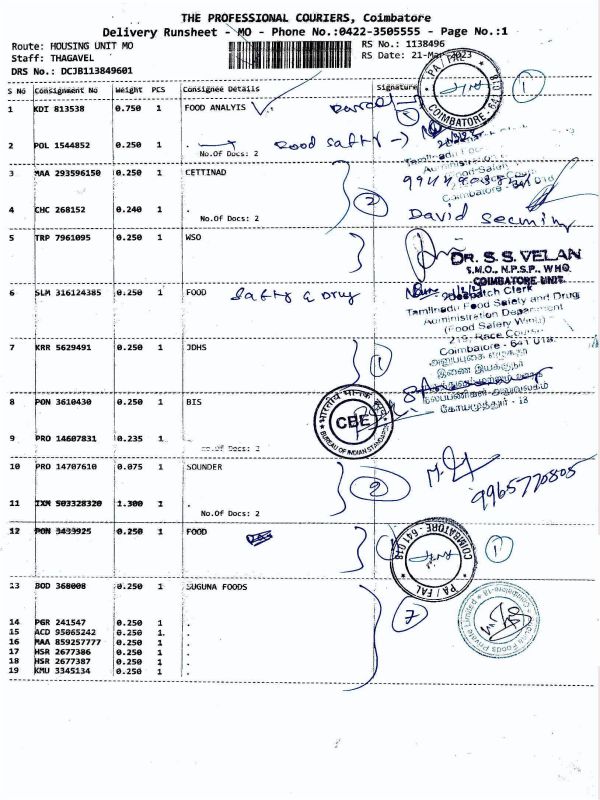 THE PROFESSIONAL COURIERS, Coimbatore
Delivery Runsheet - MO - Phone No.:0422-3505555 - Page No.:1
Route: HOUSING UNIT MO
RS No.: 1138496
Staff: THAGAVEL
RS Date: 21-Mar-2023
DRS No.: DCJB113849601
S No Consignment No Weight PCS Consignee Details Signature
1 KDI 813538 0.750 1 FOOD ANALYIS
2 POL 1544852 0.250 1 . Food safty
No.Of Docs: 2
3 MAA 293596150 0.250 1 CETTINAD
4 CHC 268152 0.240 1 . 2 David
No.Of Docs: 2
5 TRP 7961095 0.250 1 WSO
DR. S.S. VELAN
S.M.O., N.P.S.P., W.H.O.
COIMBATORE UNIT.
6 SLM 316124385 0.250 1 FOOD Safty & Drug
Despatch Clerk
Tamilnadu Food Safety and Drug
Administration Department
(Food Safety Wing)
219, Race Course
Coimbatore - 641 018.
7 KRR 5629491 0.250 1 JDHS 1
கோயமுத்தூர் - 18
8 PON 3610430 0.250 1 BIS
CBE
BUREAU OF INDIAN STANDARDS
9 PRO 14607831 0.235 1 .
No.Of Docs: 2
10 PRO 14707610 0.075 1 SOUNDER
2 9965770805
11 IXM 503328320 1.300 1 .
No.Of Docs: 2
12 PON 3433925 0.250 1 FOOD
1
COIMBATORE - 641 018
PA / FAL
13 BOD 368008 0.250 1 SUGUNA FOODS
7
14 PGR 241547 0.250 1 .
15 ACD 95065242 0.250 1 .
16 MAA 859257777 0.250 1 .
17 HSR 2677386 0.250 1 .
18 HSR 2677387 0.250 1 .
19 KMU 3345134 0.250 1 .